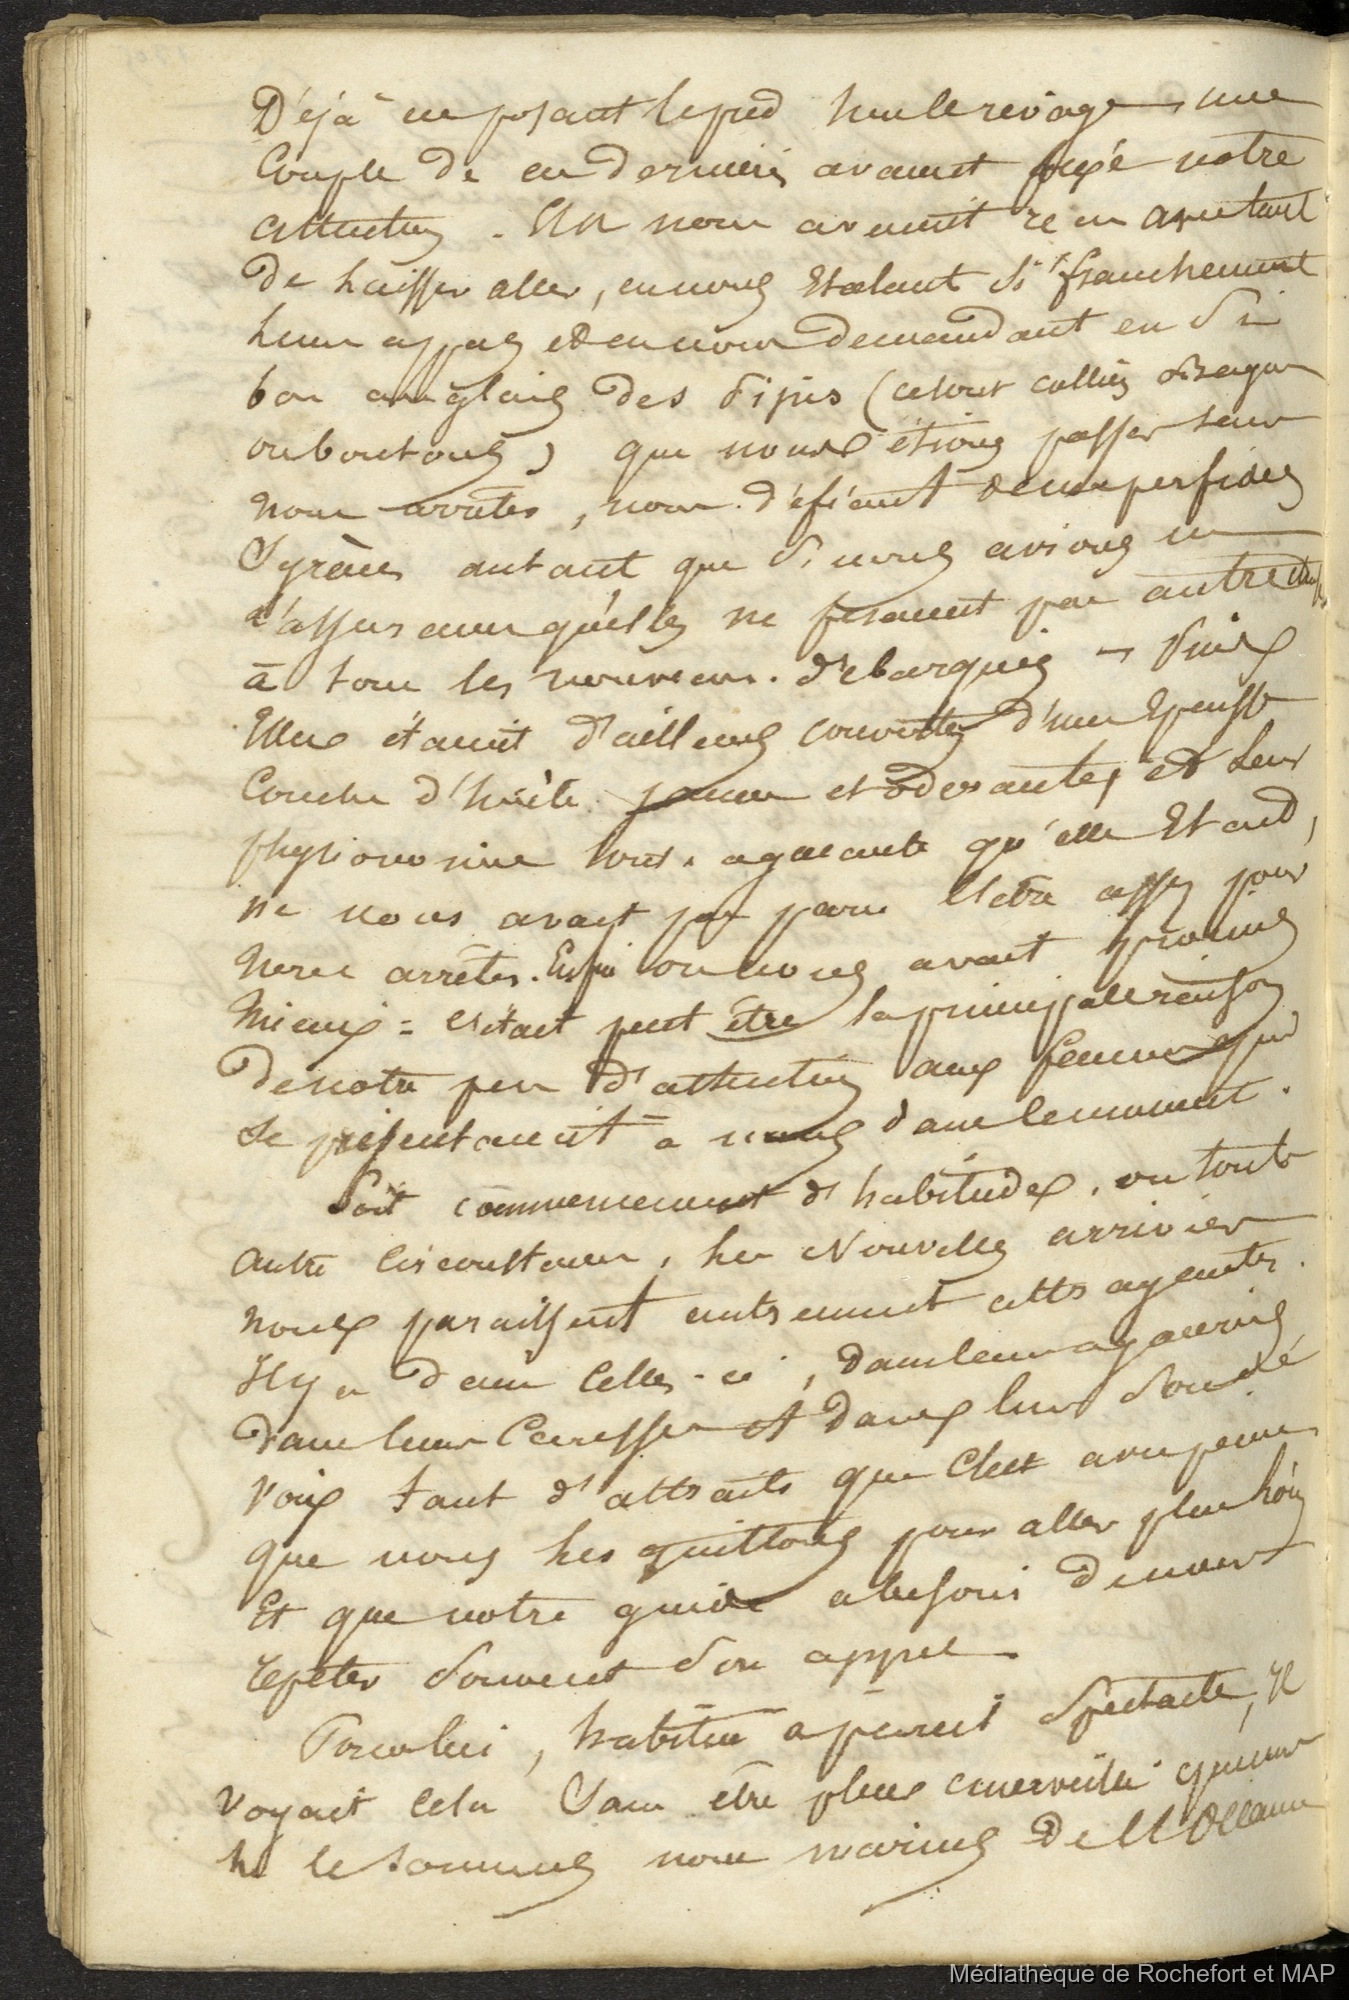 Déjà en posant le pied sur le rivage, une
Couple de ces dernieres avaient fixé notre
attention. Elles nous avaient vu avec tant
de laisser aller, en nous Etalant si franchement
leurs appas et en nous demandant en si
bon anglais des (ce sont colliers
ou boutons) que nous étions passés sans
nous arrêter, nous défiant de ces perfides
Syrènes autant que si nous avions eu
l'assurance qu'elles ne fesaient pas autre chose
à tous les nouveaux débarqués — Puis
Elles étaient d'ailleurs couvertes d'une Epaisse
Couche d'huile jaune et odorante, et leur
physionomie tout agaçante qu'elle Etait,
ne nous avait pas paru l'être assez pour
nous arrêter. Enfin on nous avait promis
Mieux = C'était peut être la principale raison
de notre peu d'attention aux femmes qui
se présentaient à nous dans le moment.
Soit commencement d'habitude, ou toute
autre circonstance, les Nouvelles arrivées
nous paraissent autrement attrayantes.
Il y a dans Celles-ci, dans leurs agaceries
dans leurs Caresses et dans leur
voix tant d'attraits que C'est avec peine
que nous les quittons pour aller plus loin
Et que notre guide a besoin de nous
répéter souvent son appel.
Pour lui, habitué a pareil spectacle, Il
voyait cela Sans être plus émerveillé que
le sommes nous marins de l'Océan